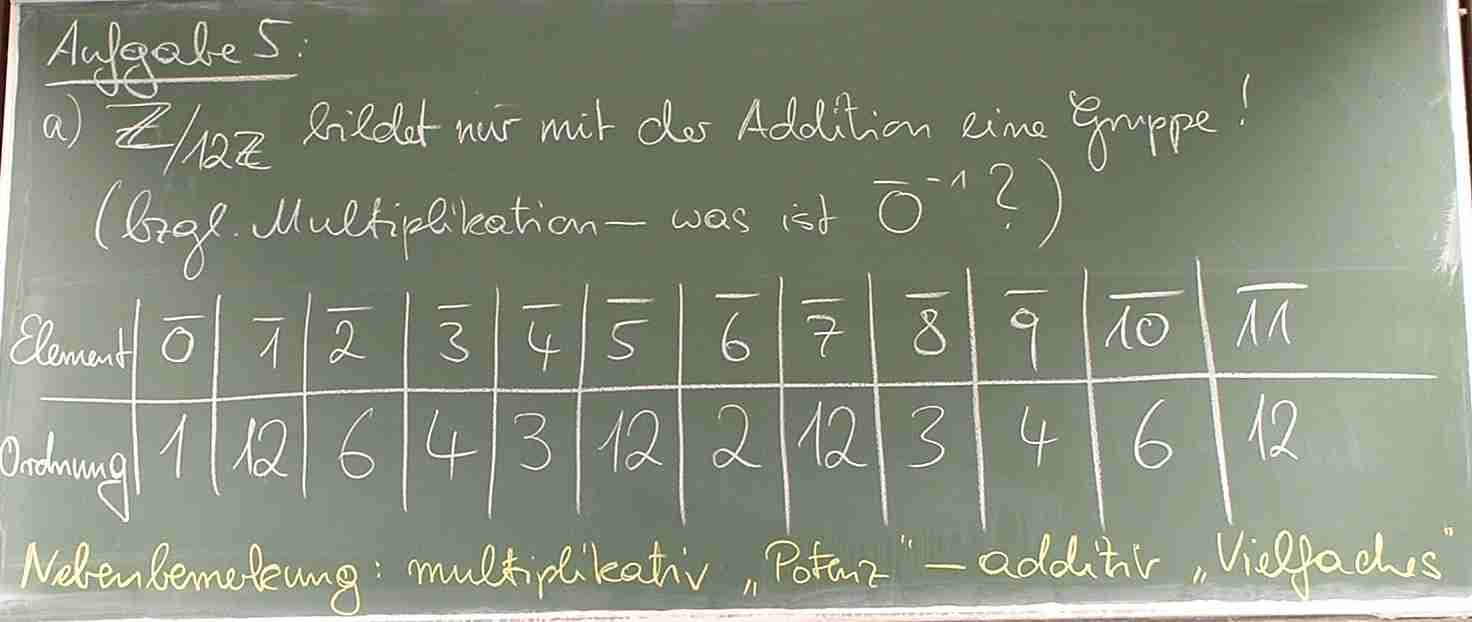 Aufgabe 5:
a) ℤ/12ℤ bildet nur mit der Addition eine Gruppe!
(bzgl. Multiplikation – was ist 0̅⁻¹?)
Element | 0̅ | 1̅ | 2̅ | 3̅ | 4̅ | 5̅ | 6̅ | 7̅ | 8̅ | 9̅ | 1̅0̅ | 1̅1̅
Ordnung | 1 | 12 | 6 | 4 | 3 | 12 | 2 | 12 | 3 | 4 | 6 | 12
Nebenbemerkung: multiplikativ „Potenz" – additiv „Vielfaches"